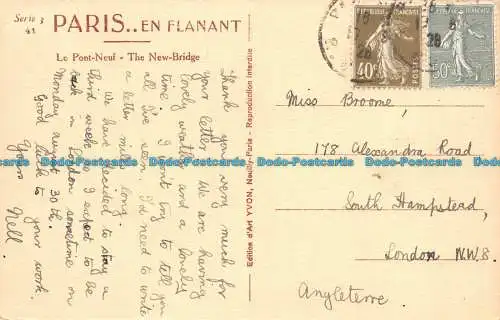 Serie 3
41
PARIS.. EN FLANANT
Le Pont-Neuf - The New-Bridge
Thank you very much for
your letter. We are having
lovely weather and a lovely
time. I won't try to tell you
all I've seen, I'd need to write
a letter miles long.
We have decided to stay a
third week so I expect to be
back in London sometime on
Monday august 30th.
Good luck to your work.
Yours
Nell
Edition d'Art YVON, Neuilly-Paris - Reproduction Interdite
REPUBLIQUE FRANÇAISE
40c
POSTES
REPUBLIQUE FRANÇAISE
50c
Miss Broome,
178 Alexandra Road
South Hampstead,
London N.W.8
Angleterre
Daddo-Postcards